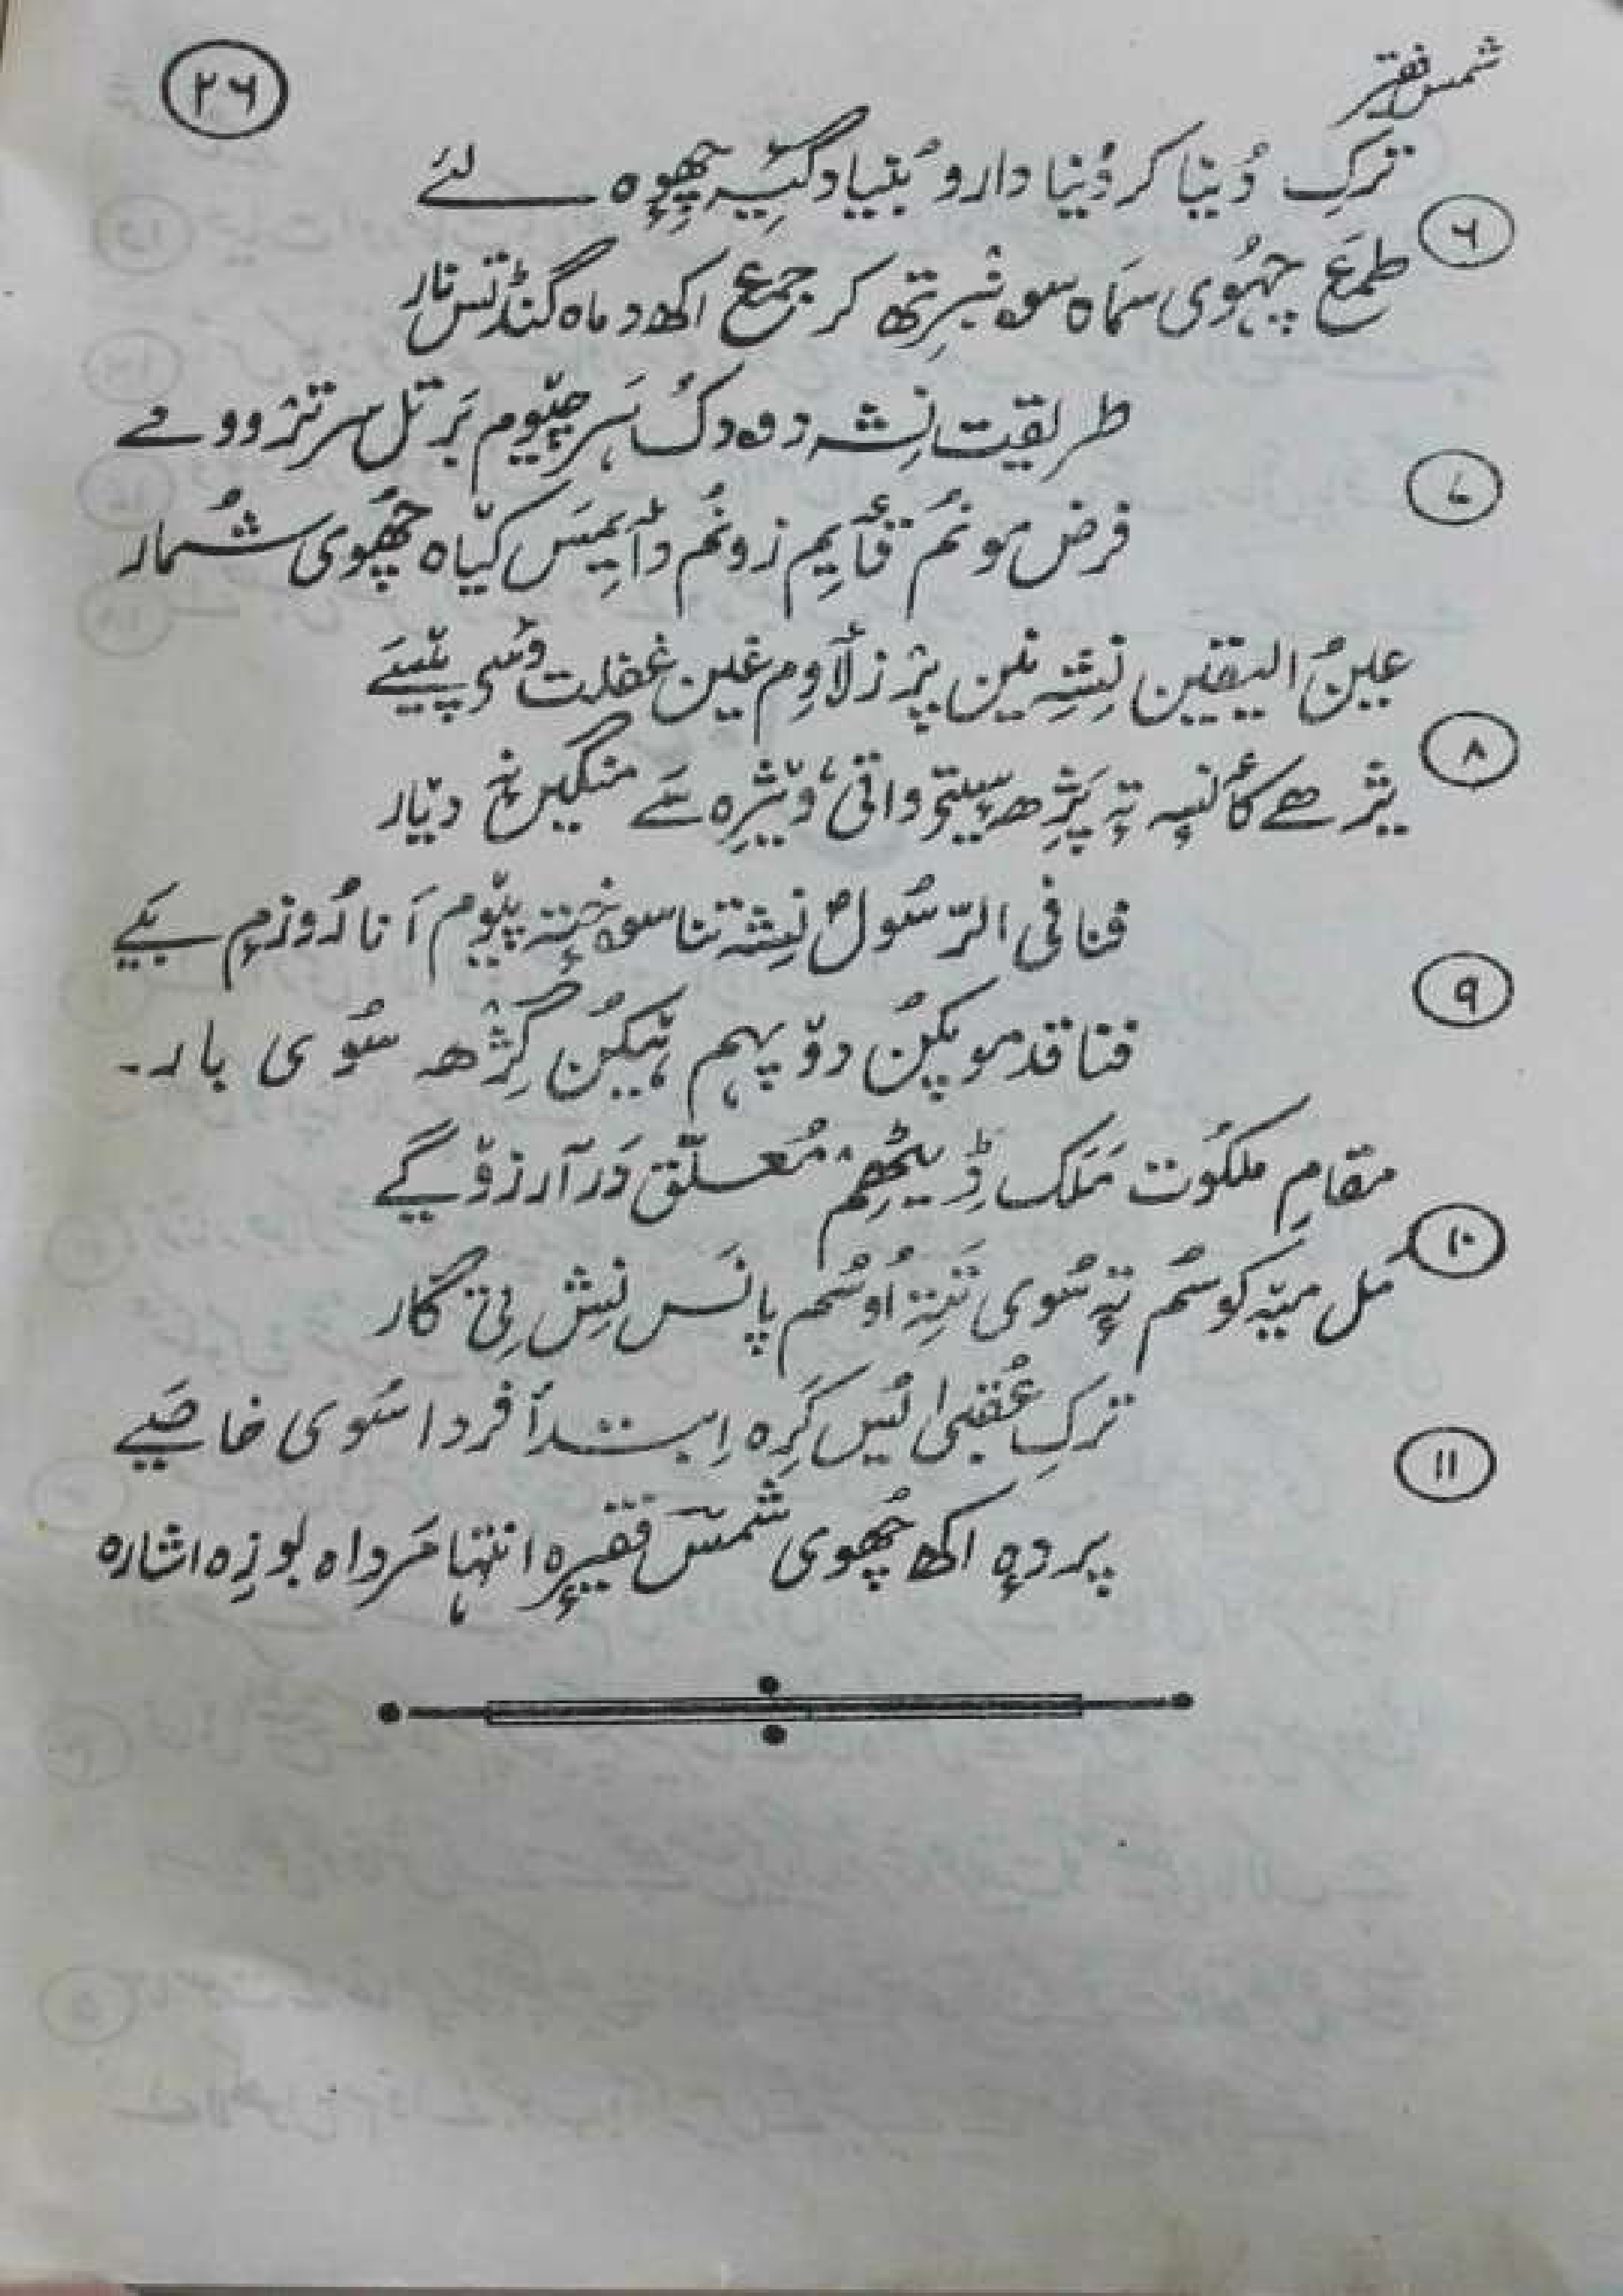 شمس فقیر
۲۶
ترکِ دُنیا کر دُنیا دارو بُنیاد گیہِ چھِوہ لئے
۶
طمَع چہُوی سَماہ سوٚنبرِتھ کر جمع اکھ دماہ گنڈتس تار
طریقیت نِشہ دٔہ دکُ ہَر چیّوم بَر تل سر ترٛووے
۷
فرض مونمُ قأیِم زونُم دأیمِس کیّاہ چھُوی شُمار
عینُ الیقین نِشہِ نین پرٛزلأوِم غین غفلت وٕسی پییَے
۸
ترٛھے کأنسہِ تہٕ پَژھ سیتی واتی، وٕیژِہ سَے منگیس نہٕ دیّار
فنا فی الرّسُولؐ نِشہ تنا سوٚختہٕ پیّوم اَنا رُوزم یَے
۹
فنا قدمو پکُن دوٚپہم ہیٚکُن گژِھ سُوی بار۔
مقامِ ملکُوت مَلَک ڈِیٹھِم مُعلّق دَر آرزوٗیے
۱۰
مَل میہٚ کوسُم تہٕ سُوی تَنِتہٕ اوسُم پانَس نِش بیٚ گار
ترکِ عُقبیٰ یُس کَرِہ اِبتدأ فردا سُوی خاصَیے
۱۱
پردہٕ اکھ چھُوی شمسؔ فقیرٕہ انتہا مَرداہ بوزِہ اشارہ